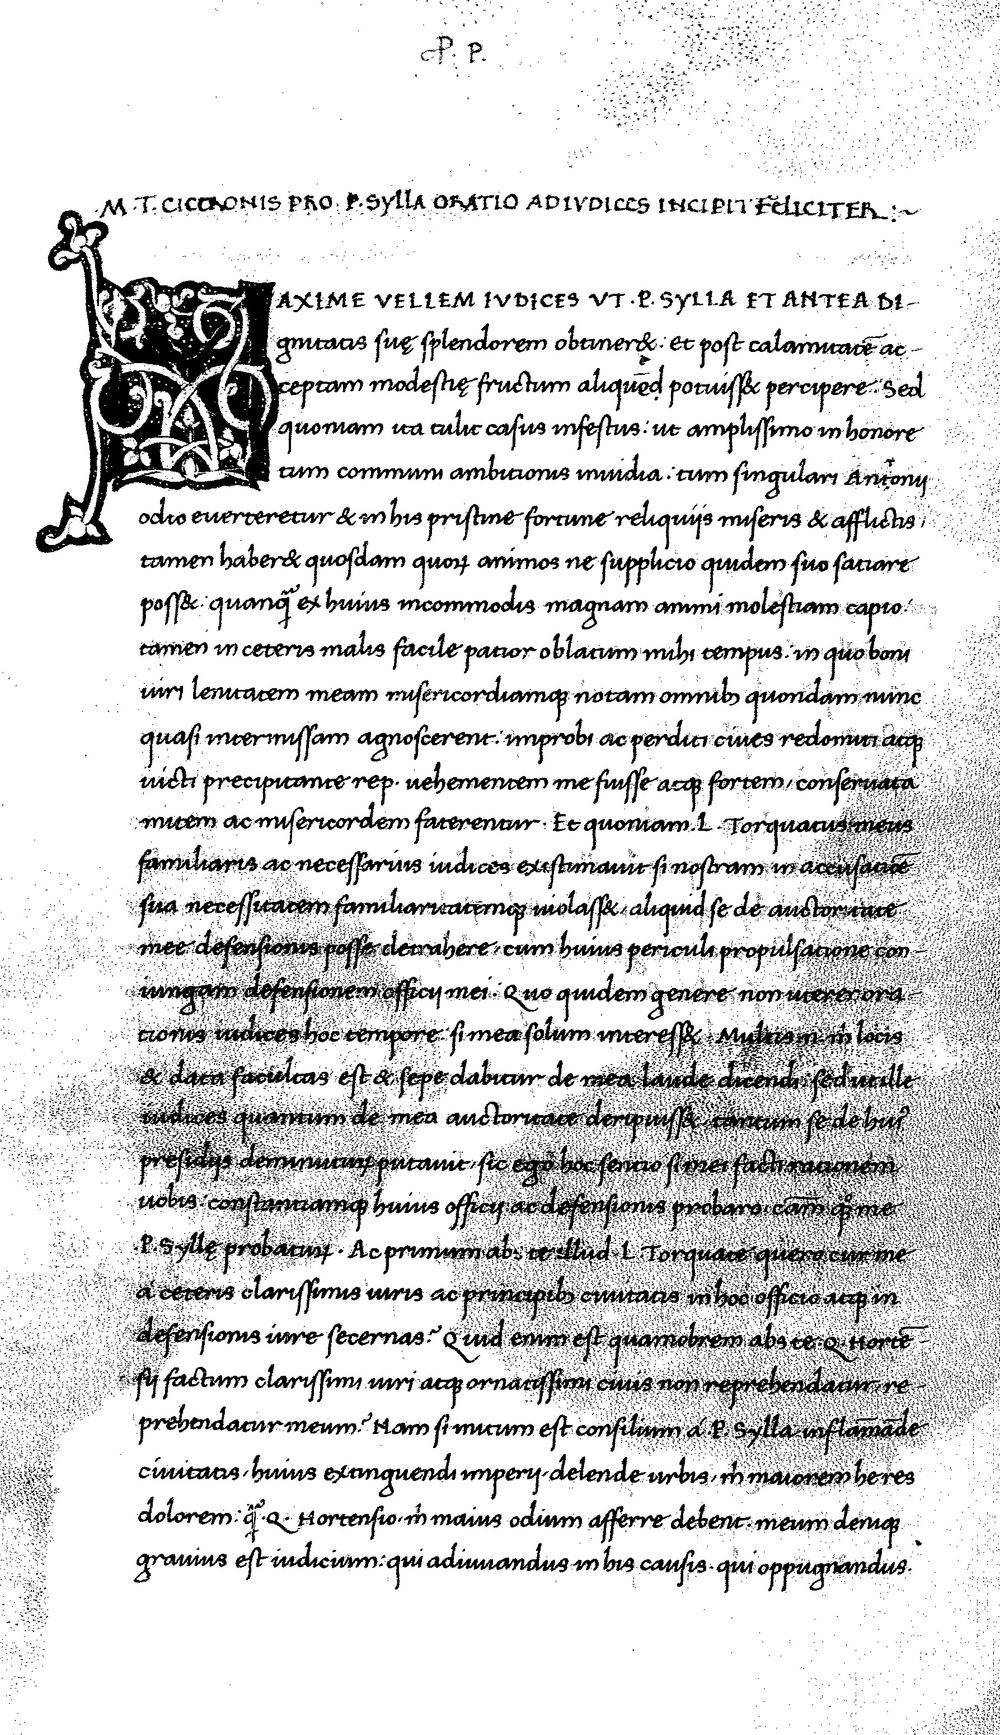 P. P.
M. T. CICERONIS PRO. P. SYLLA ORATIO AD IVDICES INCIPIT FELICITER :~
MAXIME VELLEM IVDICES VT · P. SYLLA ET ANTEA DI-
gnitatis suę splendorem obtiner&: et post calamitatē ac-
ceptam modestię fructum aliquēd potuiss& percipere. Sed
quoniam ita tulit casus infestus: ut amplissimo in honore
tum communi ambitionis inuidia: tum singulari Antonii
odio euerteretur & in his pristine fortune reliquiis miseris & afflictis
tamen haber& quosdam quoꝝ animos ne supplicio quidem suo satiare
poss&: quanqᷓ ex huius incommodis magnam animi molestiam capio:
tamen in ceteris malis facile patior oblatum mihi tempus: in quo boni
uiri lenitatem meam misericordiamqꝫ notam omnibꝫ quondam nunc
quasi intermissam agnoscerent: improbi ac perditi ciues redomiti atqꝫ
uicti precipitante rep. uehementem me fuisse atqꝫ fortem, conseruata
mitem ac misericordem faterentur. Et quoniam .L. Torquatus meus
familiaris ac necessarius iudices existimauit si nostram in accusatiōe
sua necessitatem familiaritatemqꝫ uiolass&, aliquid se de auctoritate
mee defensionis posse detrahere, cum huius periculi propulsatione con-
iungam defensionem officii mei. Quo quidem genere non uterer ora-
tionis iudices hoc tempore: si mea solum interess&. Multis n. m̄ locis
& data facultas est & sepe dabitur de mea laude dicendi: sed ut ille
iudices quantum de mea auctoritate deripuiss& tantum se de huiꝰ
presidiis deminuturꝫ putauit, sic ego hoc sentio si mei facti rationem
uobis constantiamqꝫ huius officii ac defensionis probaro cām qꝫ me
P. Syllę probaturꝫ. Ac primum abs te illud .L. Torquate quero cur me
a ceteris clarissimis uiris ac principibꝫ ciuitatis in hoc officio atqꝫ in
defensionis iure secernas? Quid enim est quamobrem abs te .Q. Hortē-
sii factum clarissimi uiri atqꝫ ornatissimi ciuis non reprehendatur, re-
prehendatur meum? Nam si initum est consilium á P. Sylla inflamāde
ciuitatis, huius extinguendi imperii, delende urbis, m̄ maiorem he res
dolorem: qᷓ .Q. Hortensio, m̄ maius odium afferre debent: meum deniqꝫ
grauius est iudicium: qui adiuuandus in his causis, qui oppugnandus.